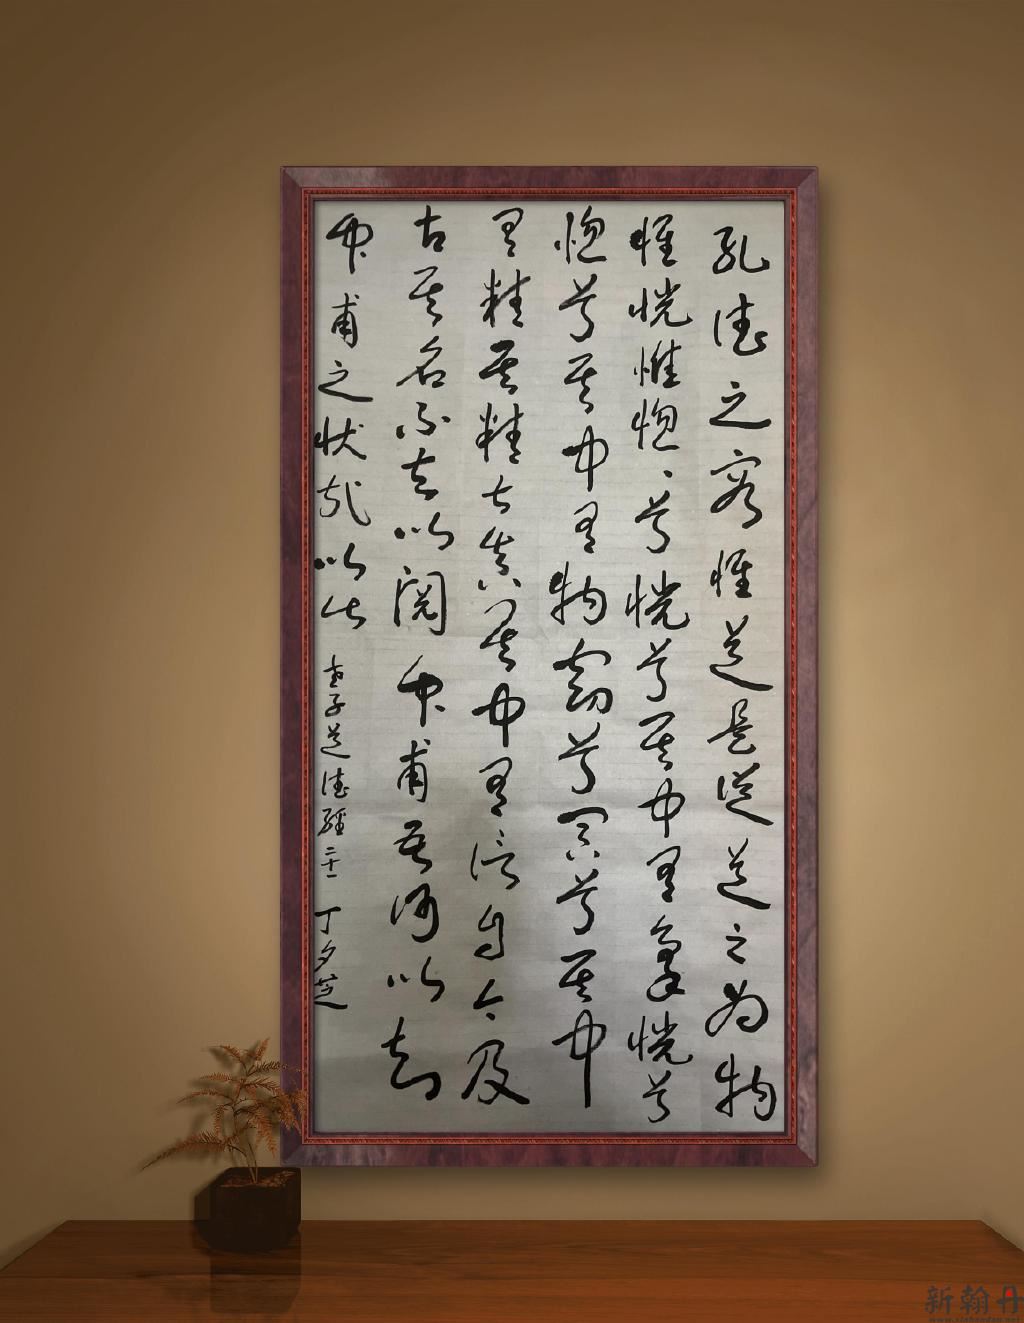 孔德之容惟道是从道之为物
惟恍惟惚惚兮恍兮其中有象恍兮
惚兮其中有物窈兮冥兮其中
有精其精甚真其中有信自今及
古其名不去以阅众甫吾何以知
众甫之状哉以此
老子道德经二十一
丁夕芝
新翰丹